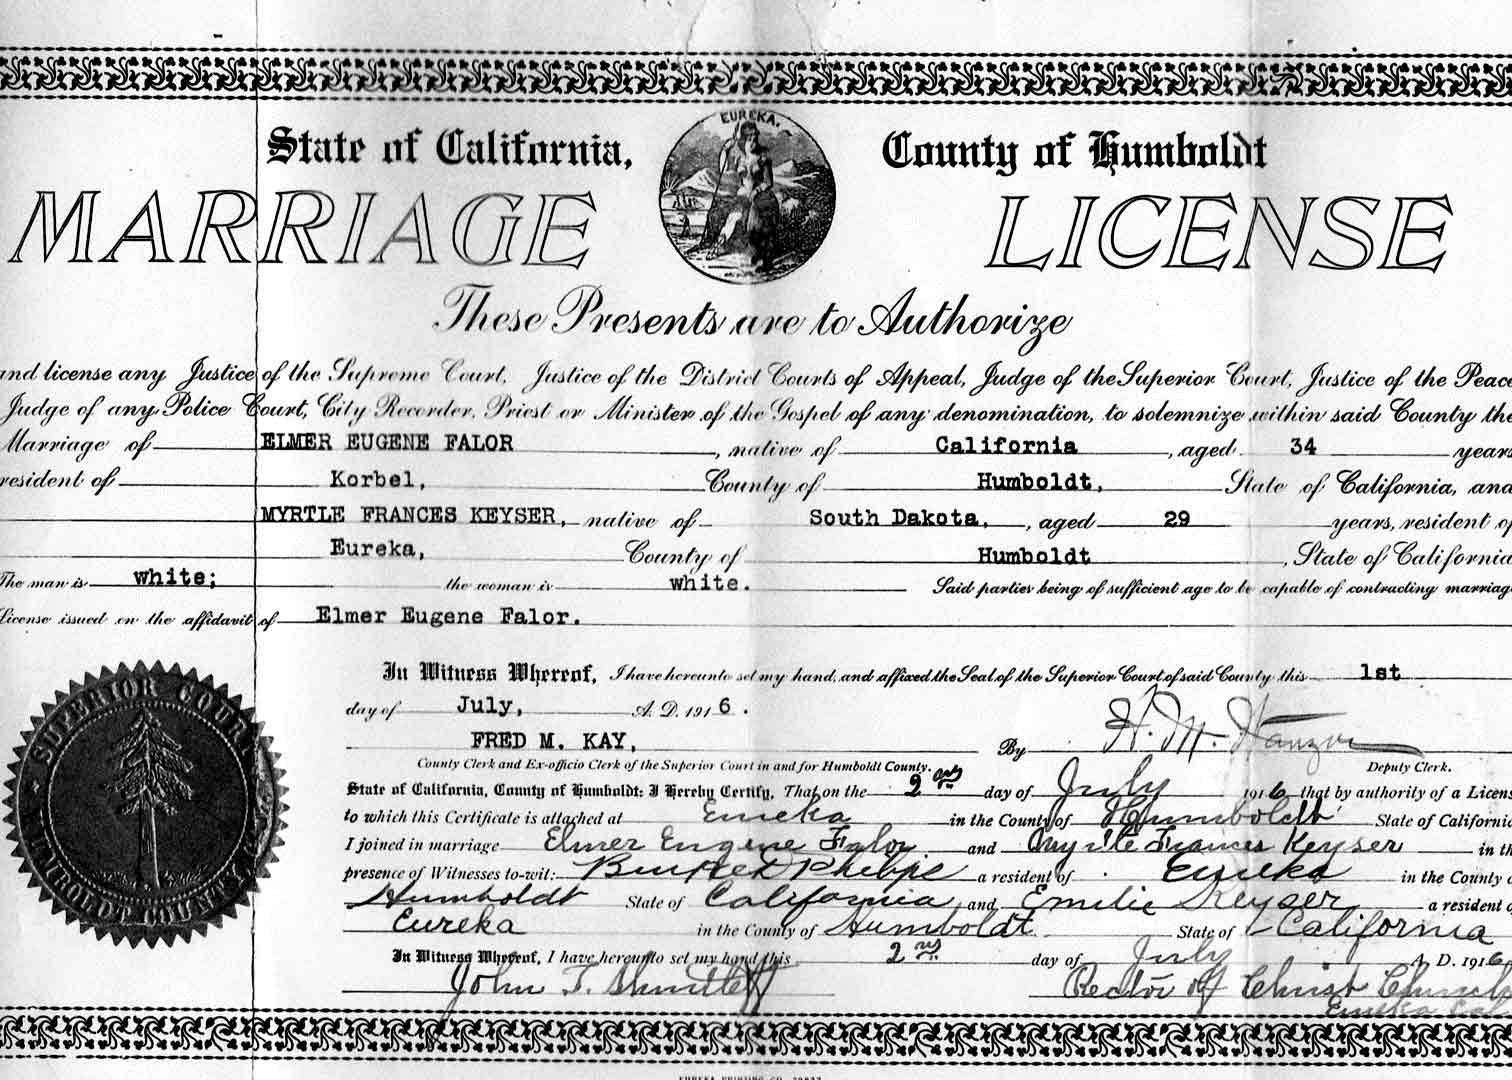 EUREKA.
State of California, County of Humboldt
MARRIAGE LICENSE
These Presents are to Authorize
and license any Justice of the Supreme Court, Justice of the District Courts of Appeal, Judge of the Superior Court, Justice of the Peace
Judge of any Police Court, City Recorder, Priest or Minister of the Gospel of any denomination, to solemnize within said County the
Marriage of ELMER EUGENE FALOR, native of California, aged 34 years
resident of Korbel, County of Humboldt, State of California, and
MYRTLE FRANCES KEYSER, native of South Dakota, aged 29 years, resident of
Eureka, County of Humboldt, State of California
The man is white; the woman is white. Said parties being of sufficient age to be capable of contracting marriag
License issued on the affidavit of Elmer Eugene Falor.
In Witness Whereof, I have hereunto set my hand, and affixed the Seal of the Superior Court of said County this 1st
day of July, A. D. 1916.
FRED M. KAY, By H. M.
County Clerk and Ex-officio Clerk of the Superior Court in and for Humboldt County. Deputy Clerk.
State of California, County of Humboldt: I Hereby Certify, That on the 2nd day of July 1916, that by authority of a Licens
to which this Certificate is attached at Eureka in the County of Humboldt State of California
I joined in marriage Elmer Eugene Falor and Myrtle Frances Keyser in th
presence of Witnesses to-wit: Phelps a resident of Eureka in the County o
Humboldt State of California and Emilie Keyser a resident o
Eureka in the County of Humboldt State of California
In Witness Whereof, I have hereunto set my hand this 2nd day of July A. D. 1916
John T. Shurtleff Rector of Christ Church
Eureka Cal
SUPERIOR COURT
HUMBOLDT COUNTY CAL
EUREKA PRINTING CO.